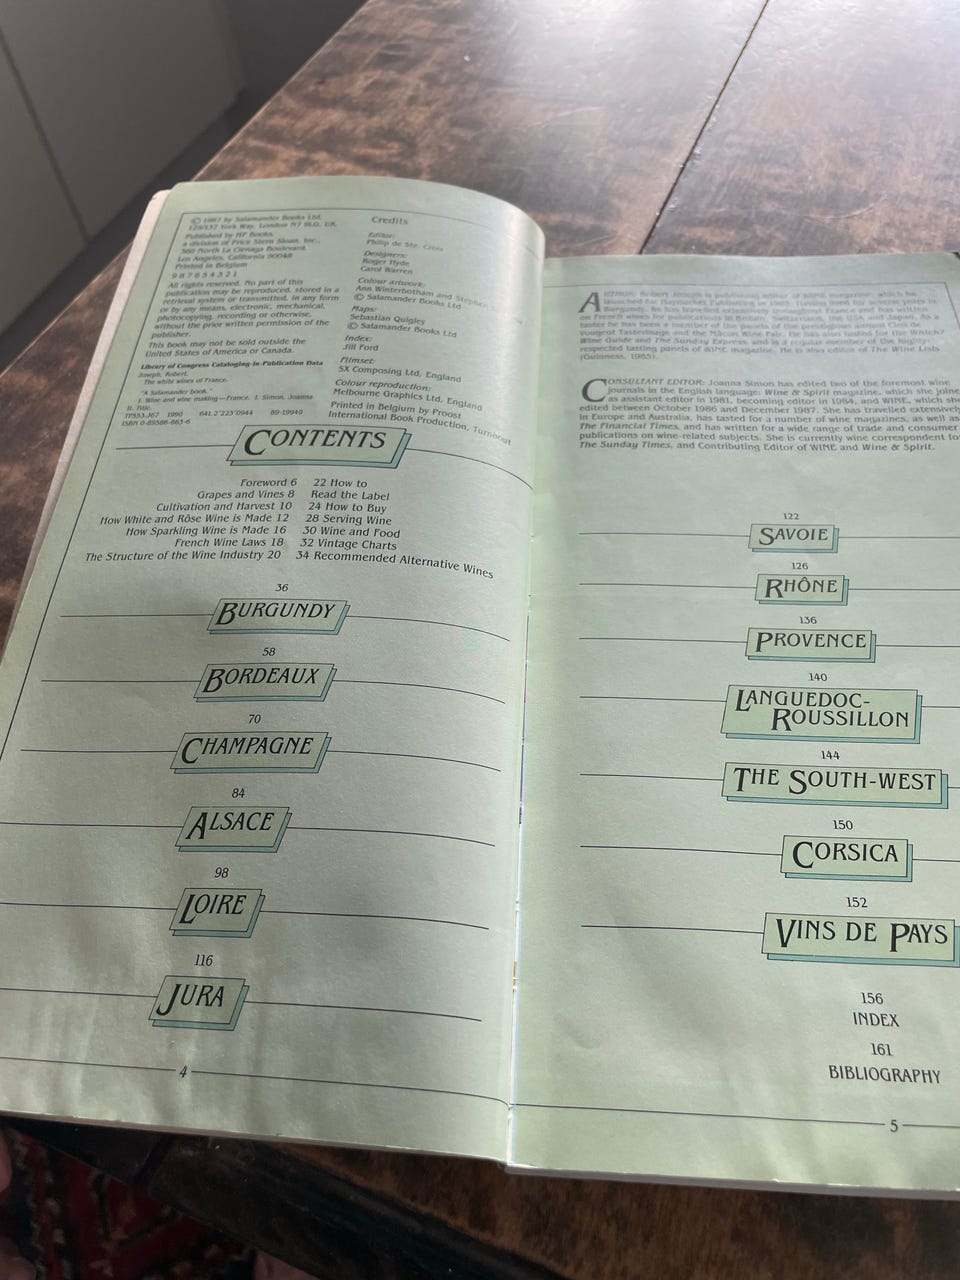 © 1987 by Salamander Books Ltd.
129/137 York Way, London N7 9LG, UK.
Published by HP Books,
a division of Price Stern Sloan, Inc.,
360 North La Cienaga Boulevard,
Los Angeles, California 90048
Printed in Belgium
9 8 7 6 5 4 3 2 1
All rights reserved. No part of this
publication may be reproduced, stored in a
retrieval system or transmitted, in any form
or by any means, electronic, mechanical,
photocopying, recording or otherwise,
without the prior written permission of the
publisher.
This book may not be sold outside the
United States of America or Canada.
Library of Congress Cataloging-in-Publication Data
Joseph, Robert.
The white wines of France.
"A Salamander book."
1. Wine and wine making—France. I. Simon, Joanna
II. Title.
TP553.J67 1990 641.2'223'0944 89-19940
ISBN 0-89586-863-6
Credits
Editor:
Philip de Ste. Croix
Designers:
Roger Hyde
Carol Warren
Colour artwork:
Ann Winterbotham and Stephen
© Salamander Books Ltd
Maps:
Sebastian Quigley
© Salamander Books Ltd
Index:
Jill Ford
Filmset:
SX Composing Ltd, England
Colour reproduction:
Melbourne Graphics Ltd, England
Printed in Belgium by Proost
International Book Production, Turnhout
CONTENTS
Foreword 6
Grapes and Vines 8
Cultivation and Harvest 10
How White and Rôse Wine is Made 12
How Sparkling Wine is Made 16
French Wine Laws 18
The Structure of the Wine Industry 20
22 How to
Read the Label
24 How to Buy
28 Serving Wine
30 Wine and Food
32 Vintage Charts
34 Recommended Alternative Wines
36
BURGUNDY
58
BORDEAUX
70
CHAMPAGNE
84
ALSACE
98
LOIRE
116
JURA
4
AUTHOR: Robert Joseph is publishing editor of WINE magazine, which he
launched for Haymarket Publishing in 1983. Having lived for some years in
Burgundy, he has travelled extensively throughout France and written
on French wines for publications in Britain, Switzerland, the USA and Japan. As a
taster he has been a member of the panels of the prestigious annual Clos de
Vougeot Tastevinage and the Mâcon Wine Fair. He has also tasted for the Which?
Wine Guide and The Sunday Express and is a regular member of the highly-
respected tasting panels of WINE magazine. He is also editor of The Wine Lists
(Guinness, 1985).
CONSULTANT EDITOR: Joanna Simon has edited two of the foremost wine
journals in the English language: Wine & Spirit magazine, which she joined
as assistant editor in 1981, becoming editor in 1984, and WINE, which she
edited between October 1986 and December 1987. She has travelled extensively
in Europe and Australia, has tasted for a number of wine magazines, as well as
The Financial Times, and has written for a wide range of trade and consumer
publications on wine-related subjects. She is currently wine correspondent for
The Sunday Times, and Contributing Editor of WINE and Wine & Spirit.
122
SAVOIE
126
RHÔNE
136
PROVENCE
140
LANGUEDOC-
ROUSSILLON
144
THE SOUTH-WEST
150
CORSICA
152
VINS DE PAYS
156
INDEX
161
BIBLIOGRAPHY
5